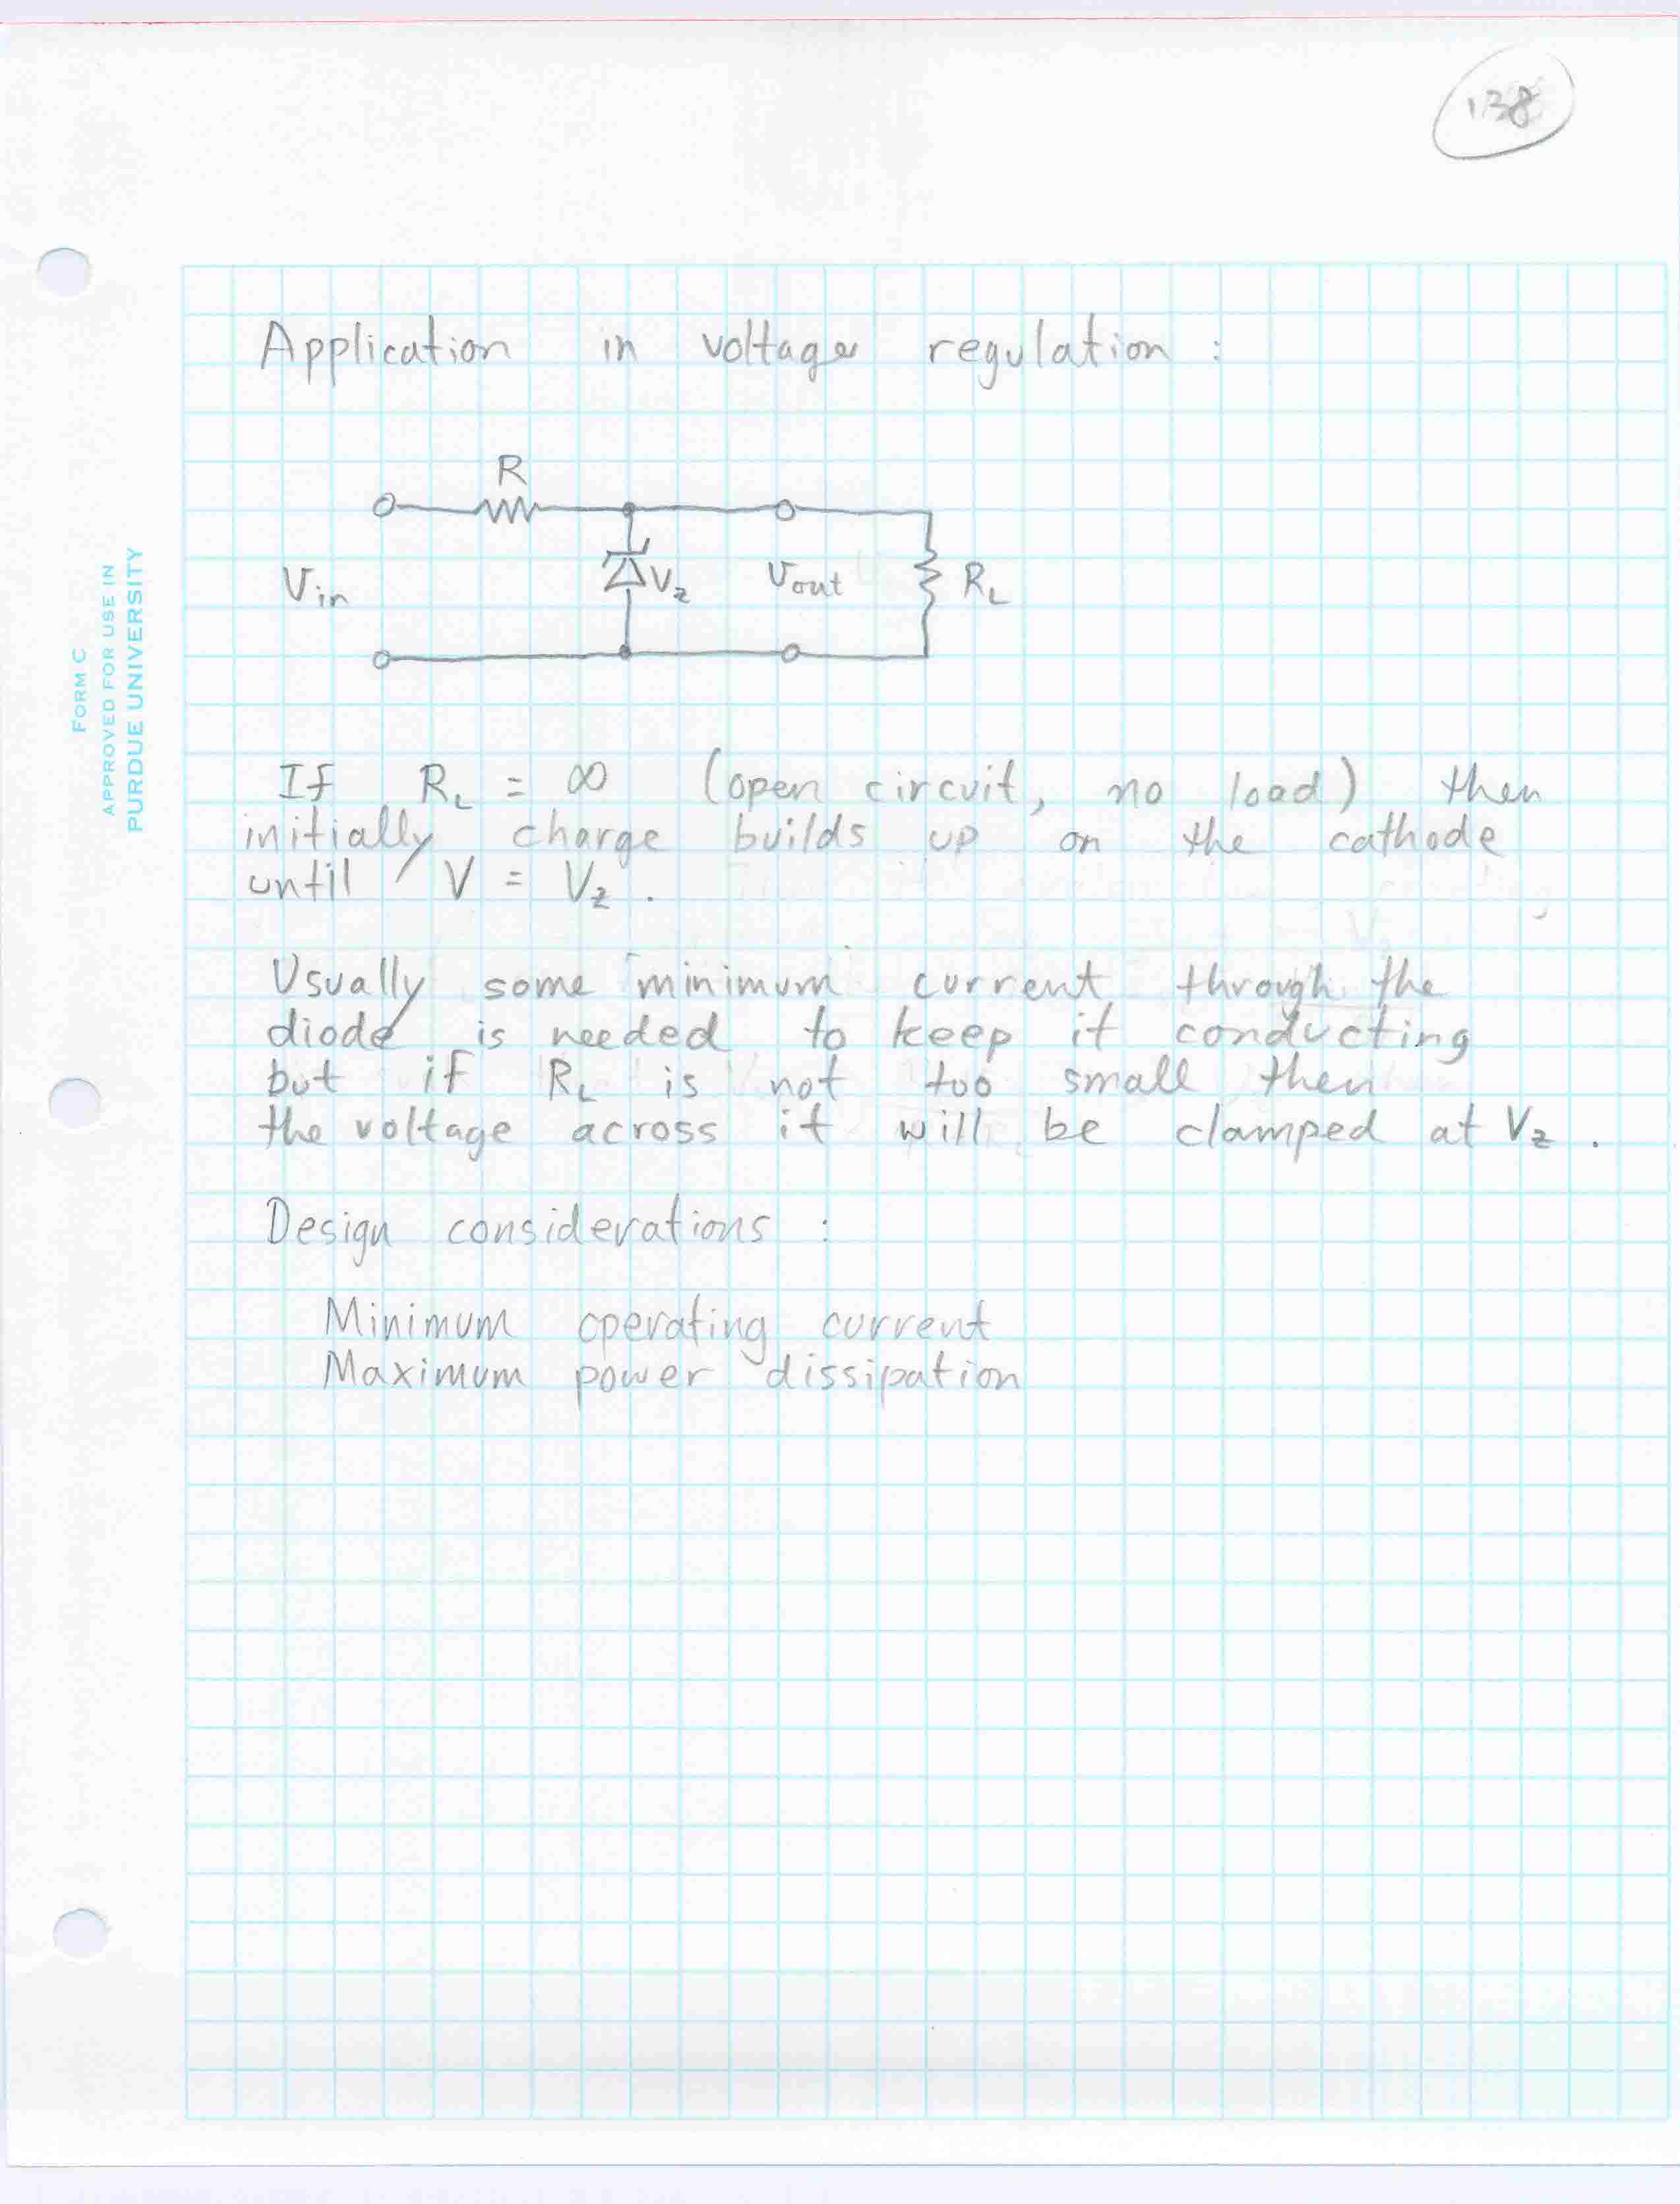 138
Application in voltage regulation :
R
Vin
Vz
Vout
RL
If RL = ∞ (open circuit, no load) then
initially charge builds up on the cathode
until V = Vz .
Usually some "minimum" current through the
diode is needed to keep it conducting
but if RL is not too small then
the voltage across it will be clamped at Vz .
Design considerations :
Minimum operating current
Maximum power dissipation
FORM C
APPROVED FOR USE IN
PURDUE UNIVERSITY